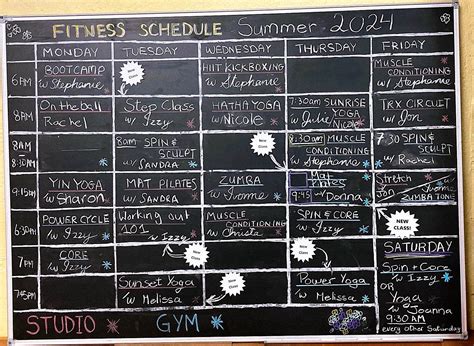 FITNESS SCHEDULE Summer 2024
MONDAY TUESDAY WEDNESDAY THURSDAY FRIDAY
6AM
BOOTCAMP
w/ Stephanie
New Class!
HIIT KICKBOXING
w/ Stephanie
MUSCLE
CONDITIONING
w/ Stephanie
8AM
On the ball
Rachel
Step Class
w/ Izzy
HATHA YOGA
w/ Nicole
7:30am SUNRISE
YOGA
w/ Julie
Nicole
TRX CIRCUIT
w/ Jon
8AM
8:30AM
SPIN &
SCULPT
w/ SANDRA
New Class!
8:30am MUSCLE
CONDITIONING
w/ Stephanie
7:30 SPIN &
SCULPT
w/ Rachel
9:15AM
YIN YOGA
w/ Sharon
MAT PILATES
w/ SANDRA
ZUMBA
w/ Yvonne
Mat
Pilates
9:45
w/ Donna
Stretch
Jon
w/ Yvonne
ZUMBA TONE
6:30PM
POWER CYCLE
w/ Izzy
Working out
101
w/ Izzy
MUSCLE
CONDITIONING
w/ Christa
SPIN & CORE
w/ Izzy
NEW
CLASS!
7PM
CORE
w/ Izzy
New Class!
New Class!
SATURDAY
7:45PM
Sunset Yoga
w/ Melissa
Power Yoga
w/ Melissa
Spin + Core
w/ Izzy
OR
Yoga
w/ Joanna
9:30 AM
every other Saturday
STUDIO GYM